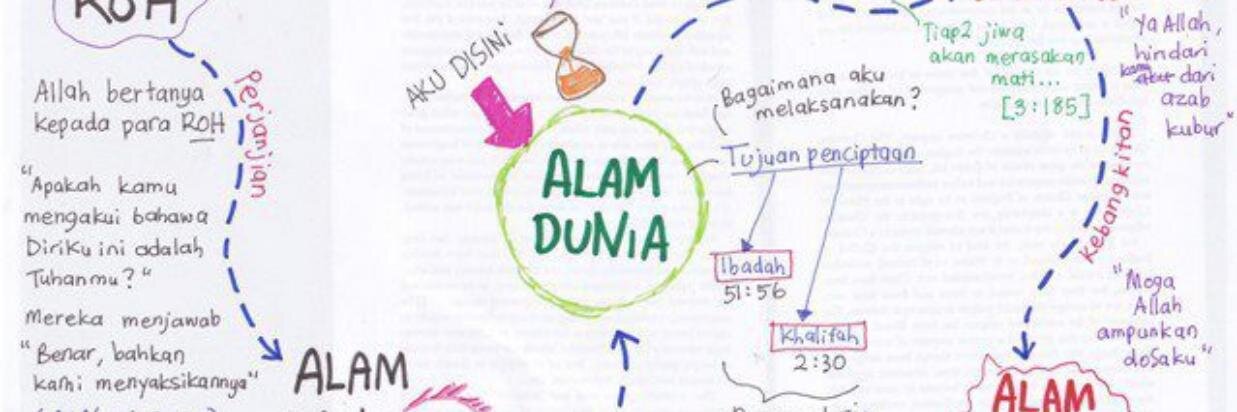 ROH
Perjanjian
Allah bertanya
kepada para ROH
"Apakah kamu
mengakui bahawa
DiriKu ini adalah
Tuhanmu?"
Mereka menjawab
"Benar, bahkan
kami menyaksikannya"
ALAM
AKU DISINI
ALAM
DUNIA
Bagaimana aku
melaksanakan?
Tujuan penciptaan
Ibadah
51:56
Khalifah
2:30
Tiap2 jiwa
akan merasakan
mati...
[3:185]
"Ya Allah,
hindari
kami dari
azab
kubur"
Kebangkitan
"Moga
Allah
ampunkan
dosaku"
ALAM